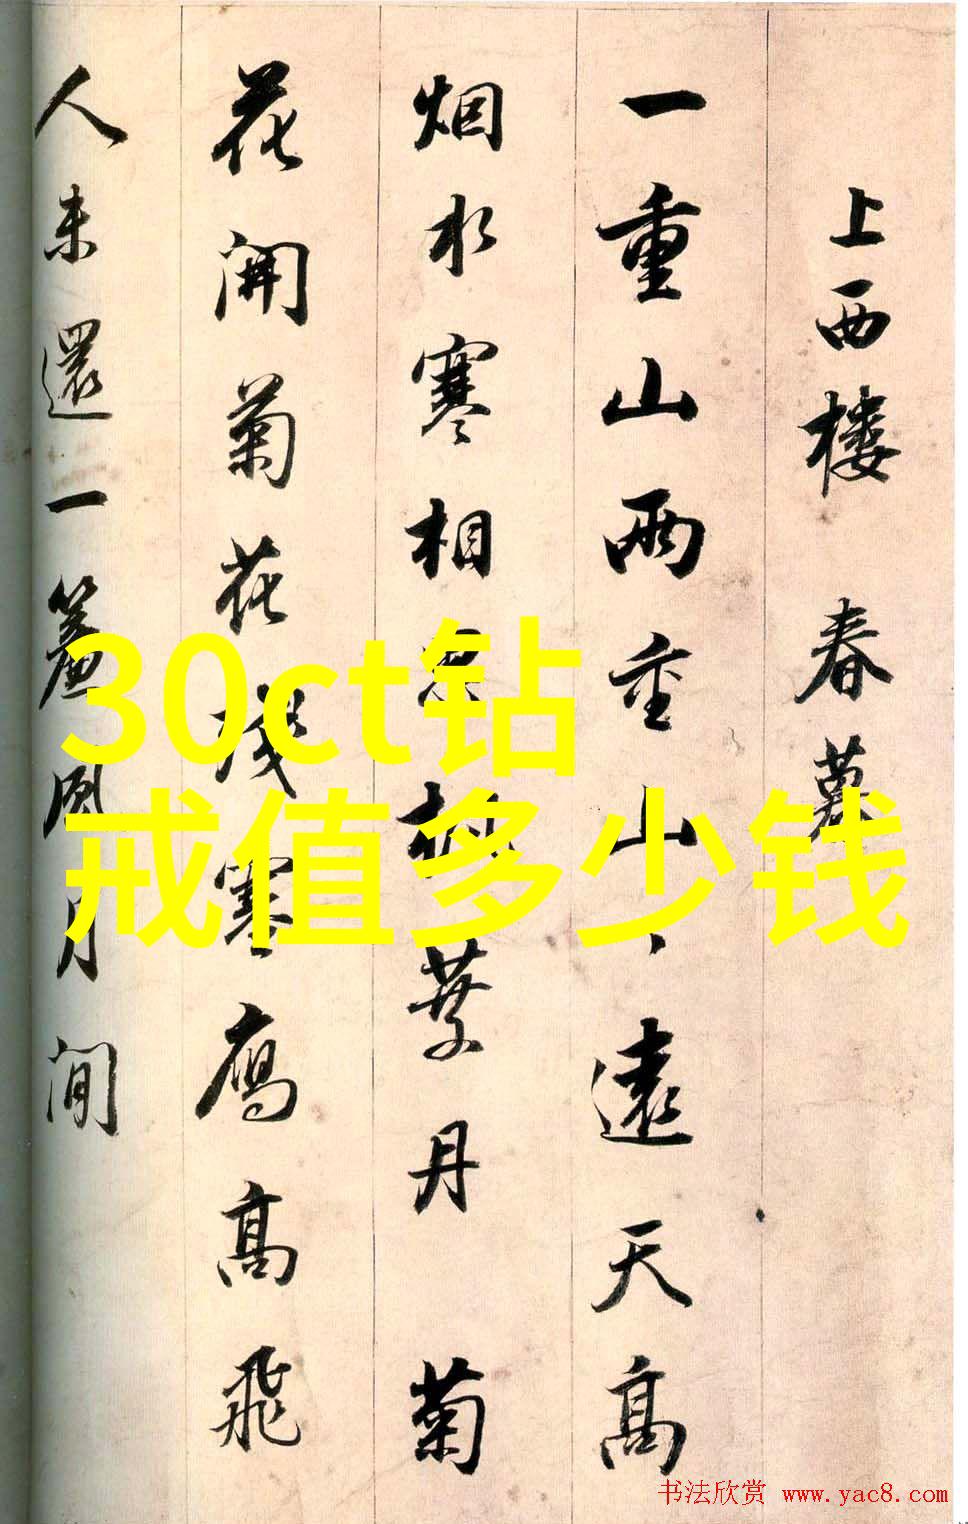 上西楼 春暮
一重山兩重山山遠天高
烟水寒相思楓葉丹 菊
花開菊花残塞雁高飛
人未還一簾風月閒
30ct钻
戒值多少钱
书法欣赏 www.yac8.com